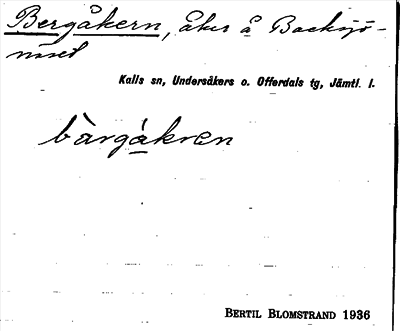 Bergåkern, åker å Backsjö-
näset
Kalls sn, Undersåkers o. Offerdals tg, Jämtl. l.
bàrgàkren
BERTIL BLOMSTRAND 1936